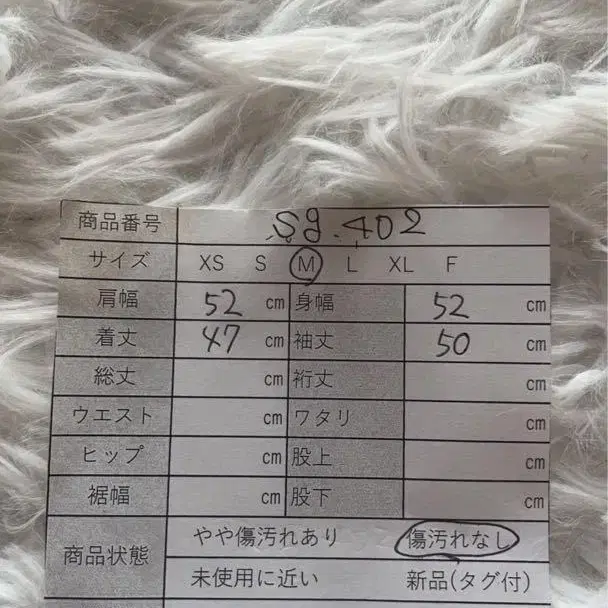 商品番号 Sg.402
サイズ XS S M L XL F
肩幅 52 cm 身幅 52 cm
着丈 47 cm 袖丈 50 cm
総丈 cm 裄丈 cm
ウエスト cm ワタリ cm
ヒップ cm 股上 cm
裾幅 cm 股下 cm
商品状態 やや傷汚れあり 傷汚れなし
未使用に近い 新品(タグ付)